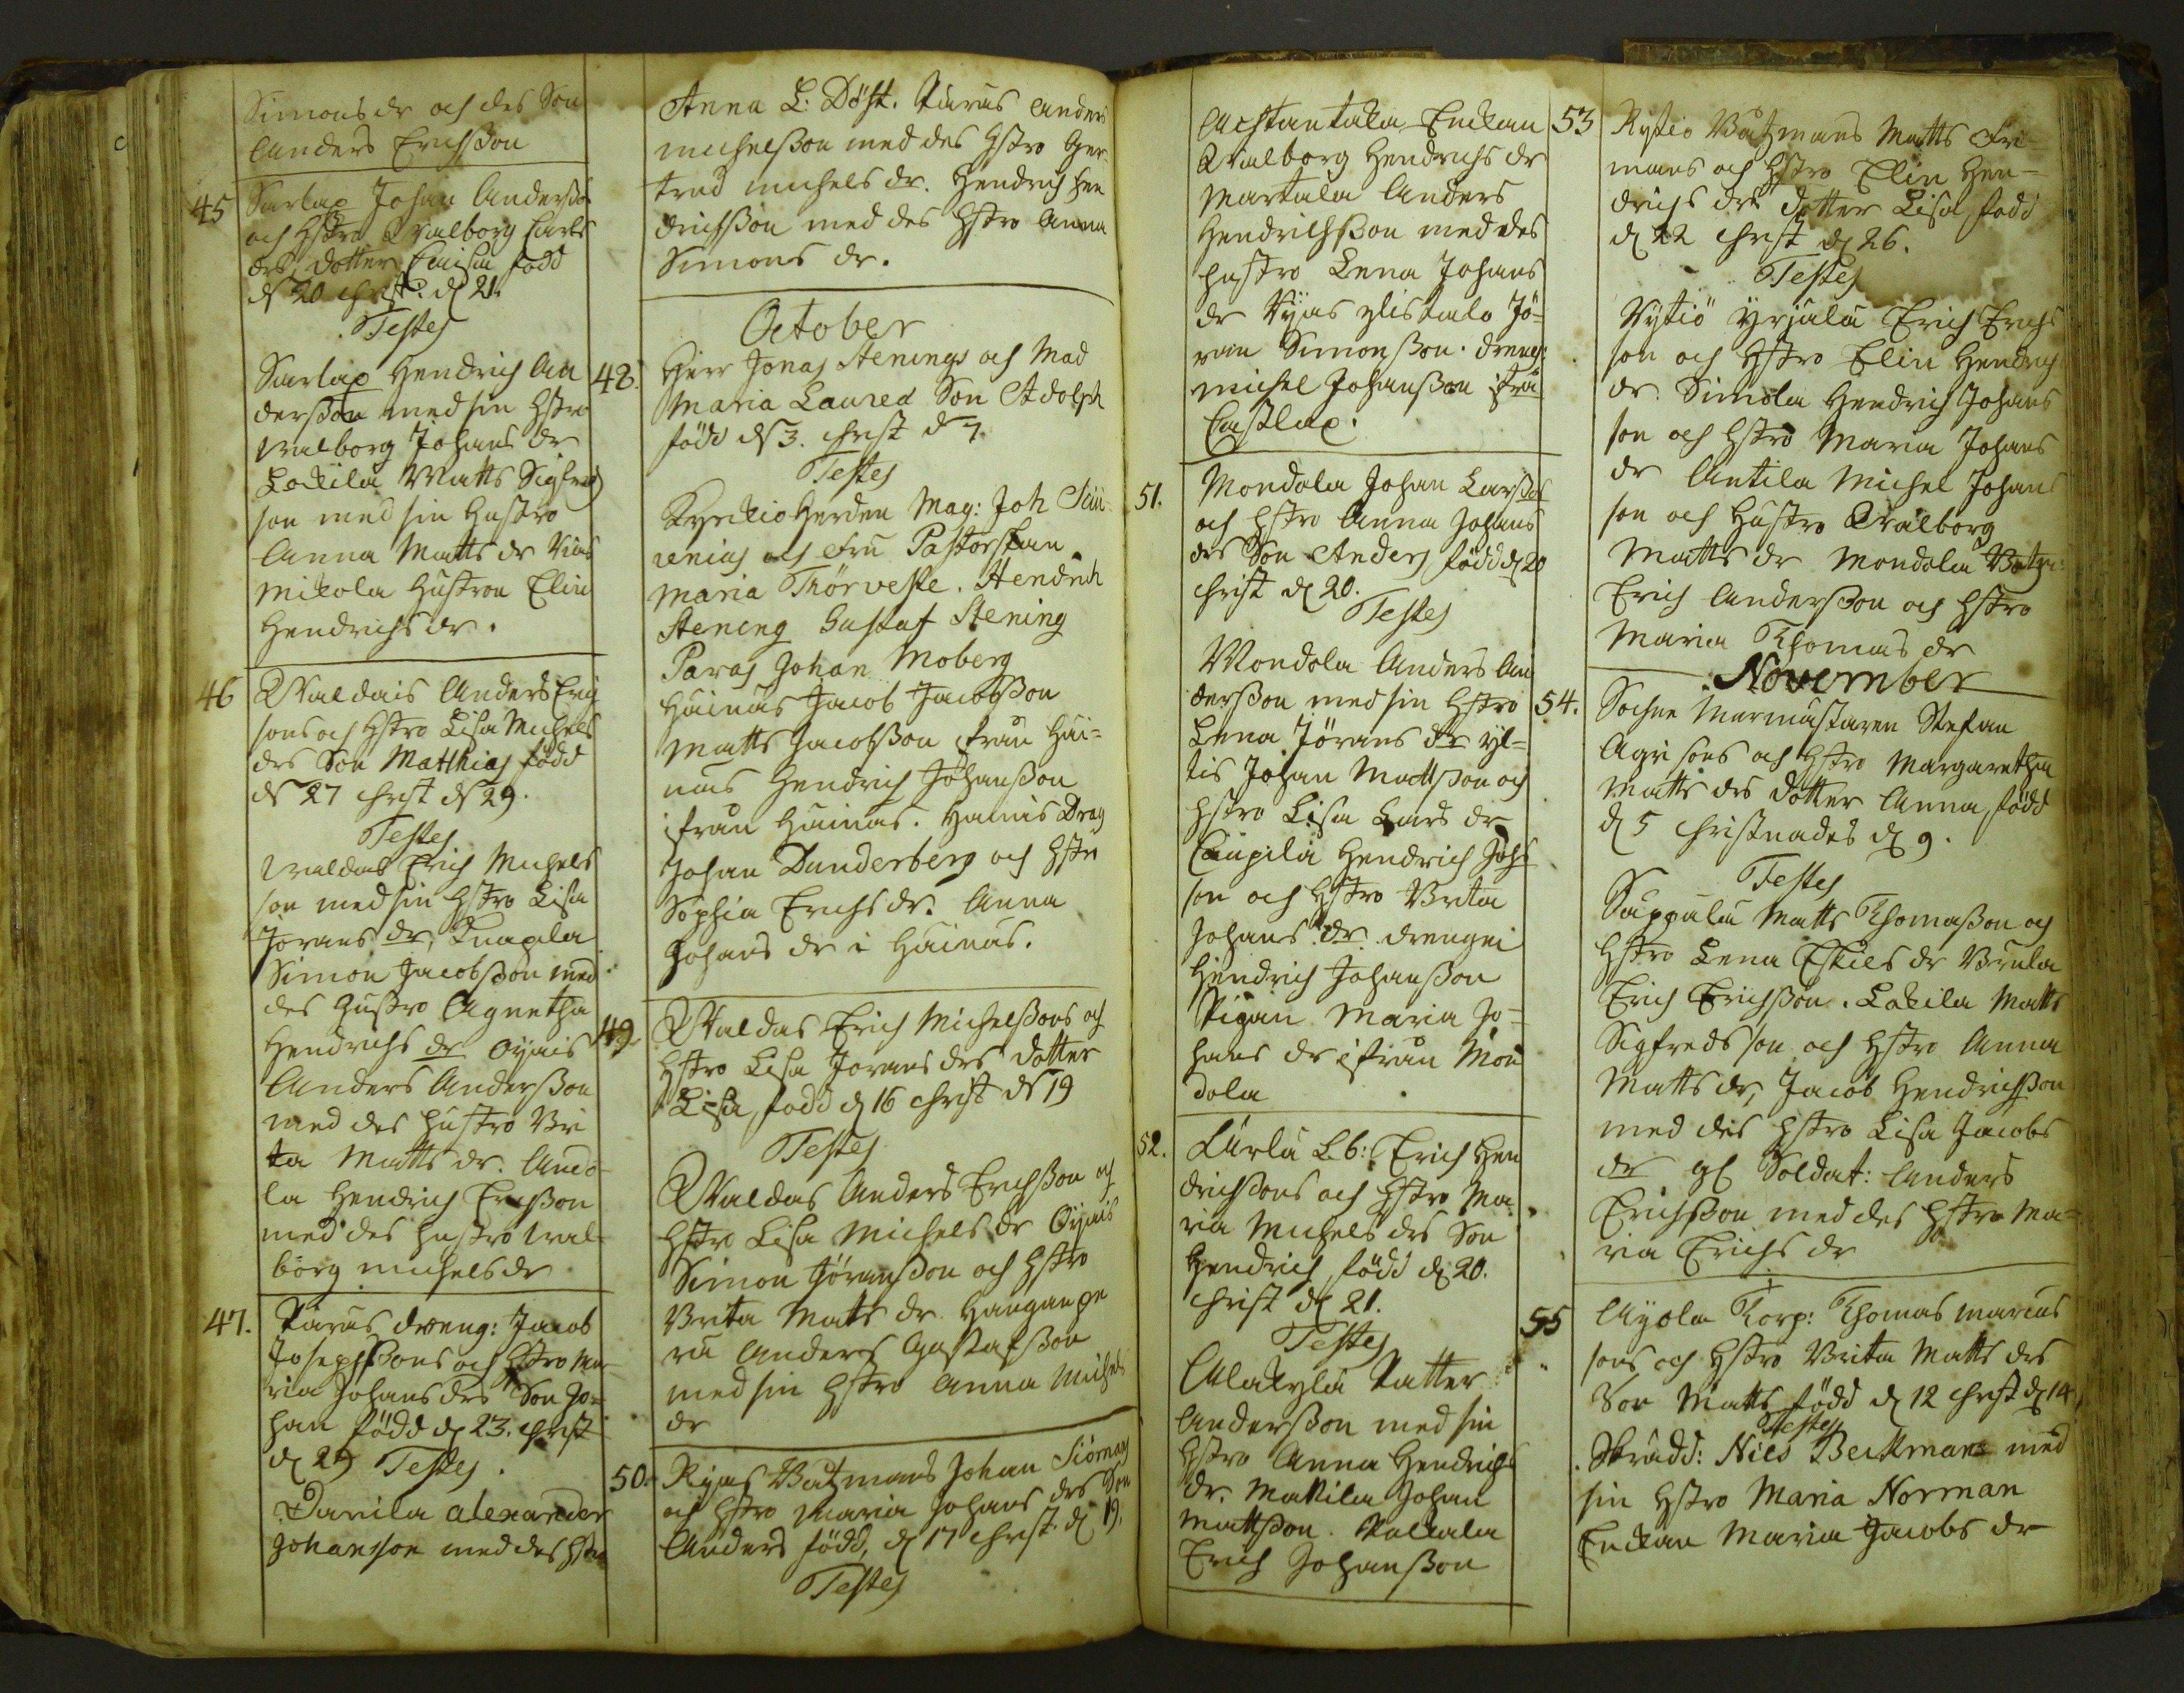 Simons dr och des Son
Anders Erichsson
45 Sarlax Johan Anderss
och Hstro Walborg Carls
drs, dotter Caisa född
d 20 christ. d 21.
Testes
Sarlax Hendrich An
dersson med sin Hstro
Walborg Johans dr
Lockila Matts Sigfreds
son med sin Hustro
Anna Matts dr
Mikola Hustron Elin
Hendrichs dr.
46 Waldais Anders Erich
sons och Hstro Lisa Michels
drs Son Matthias född
d 27 christ d 29.
Testes
Waldas Erich Michels
son med sin Hstro Lisa
Jörans dr, Knapila
Simon Jacobsson med
des Hustro Agnetha
Hendrichs dr Ojais
Anders Andersson
med des Hustro Bri
ta Matts dr.
la Hendrich Ericsson
med des Hustro Wal
borg Michels dr
47. Tarus dreng: Jacob
Josephssons och Hstro Ma
ria Johans drs Son Jo=
han född d 23. christ
d 29 Testes.
Davila Alexander
Johansson med des Hstro
Anna L: Döst. Tarus Anders
Michelsson med des Hstro Ger
trud Michels dr. Hendrich Hen
drichsson med des Hstro Anna
Simons dr.
October
48. Herr Jonas Stenings och Mad
Maria Laured Son Adolph
född d 3. christ d 7.
Testes
Kyrckio Herden Mag: Joh
enius och Fru Pastorskan
Maria Thörveste. Hendrich
Stening Gustaf Stening
Paras Johan Moberg
Hainas Jacob Jacobsson
Matts Jacobsson från Hai=
nas Hendrich Johansson
ifrån Hainas. Hainas Drag
Johan Dunderberg och Hstro
Sophia Erichs dr. Anna
Johans dr i Hainas.
49 Waldas Erich Michelssons och
Hstro Lisa Jörans drs dotter
Lisa, född d 16 christ d 19
Testes
Waldas Anders Erichsson och
Hstro Lisa Michels dr Ojais
Simon Jöransson och Hstro
Brita Matts dr. Hanganpe
rä Anders Gustafsson
med sin Hstro Anna Michels
dr
50. Rijas Båtzmans Johan Siömans
och Hstro Maria Johans drs Son
Anders född, d 17 christ d 19.
Testes
Achtantaka Enckan
Walborg Hendrichs dr
Martala Anders
Hendrichsson med des
Hustro Lena Johans
dr Ylistalo Jö=
ran Simonsson. dreng:
Michel Johansson ifrå
Castlax.
51. Mondola Johan Larsons
och Hstro Anna Johans
drs Son Anders, född d 20
christ d 20.
Testes
Mondola Anders An
dersson med sin Hstro
Lena Jörans dr yl=
tis Johan Mattsson och
Hstro Lisa Lars dr
Caupila Hendrich Johs
son och Hstro Brita
Johans dr. drengen
Hendrich Johansson
Pigan Maria Jo=
hans dr ifrån Mon
dola
52. Lårla Lb: Erich Hen
drichsons och Hstro Ma
ria Michels drs Son
Hendrich, född d 20.
christ d 21.
Testes
Alakylä
Andersson med sin
Hstro Anna Hendrichs
dr. Mattila Johan
Mattsson.
Erich Johansson
53 Rytio Båtzmans Matts
mans och Hstro Elin Hen=
drichs drs dotter Lisa, född
d 22 christ d 26.
Testes
Rytiö Yrjälä Erich Erichs
son och Hstro Elin Hendrichs
dr. Simola Hendrich Johans
son och Hstro Maria Johans
dr Antila Michel Johans
son och Hustro Walborg
Matts dr Mondola Batzm:
Erich Andersson och Hstro
Maria Thomas dr
November
54. Sockne Murmästaren Stefan
Agri sons och Hstro Margaretha
Matts drs dotter Anna, född
d 5 christnades d 9.
Testes
Sappala Matts Thomasson och
Hstro Lena Eskils dr
Erich Erichsson. Lockila Matts
Sigfreds son och Hstro Anna
Matts dr, Jacob Hendrichsson
med des Hstro Lisa Jacobs
dr gl Soldat: Anders
Erichsson med des Hstro Ma=
ria Erichs dr
55 Ayola Korp: Thomas Marcus
sons och Hstro Brita Matts drs
Son Matts född d 12 christ d 14
Testes
Skrädd: Nils Beckman med
sin Hstro Maria Norman
Enckan Maria Jacobs dr